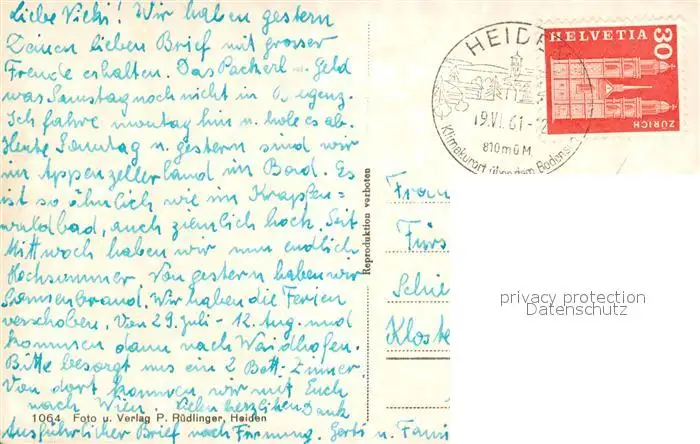 Liebe Vicki! Wir haben gestern
Deinen lieben Brief mit grosser
Freude erhalten. Das Packerl u. Geld
was Samstag noch nicht in Bregenz.
Ich fahre montag hin u. hole es ab.
Heute Sonntag u. gestern sind wir
im Appenzellerland im Bad. Es
ist so ähnlich wie im Krapfen=
waldbad, auch ziemlich hoch. Seit
Mittwoch haben wir nun endlich
Hochsommer Von gestern haben wir
Sonnenbrand. Wir haben die Ferien
verschoben. Von 29. Juli - 12. Aug. und
kommen dann nach Waidhofen.
Bitte besorgt uns ein 2 Bett-Zimmer.
Von dort kommen wir mit Euch
nach Wien. Vielen herzlichen Dank
1064 Foto u. Verlag P. Rüdlinger, Heiden
Ausführlicher Brief nach Firmung. Gerti u. Fami
Reproduktion verboten
HEIDE
19.VI.61-12
810 m ü M
Klimakurort über dem Bodensee
HELVETIA 30
ZÜRICH
Frau
Fürs
Schie
Kloste
privacy protection
Datenschutz